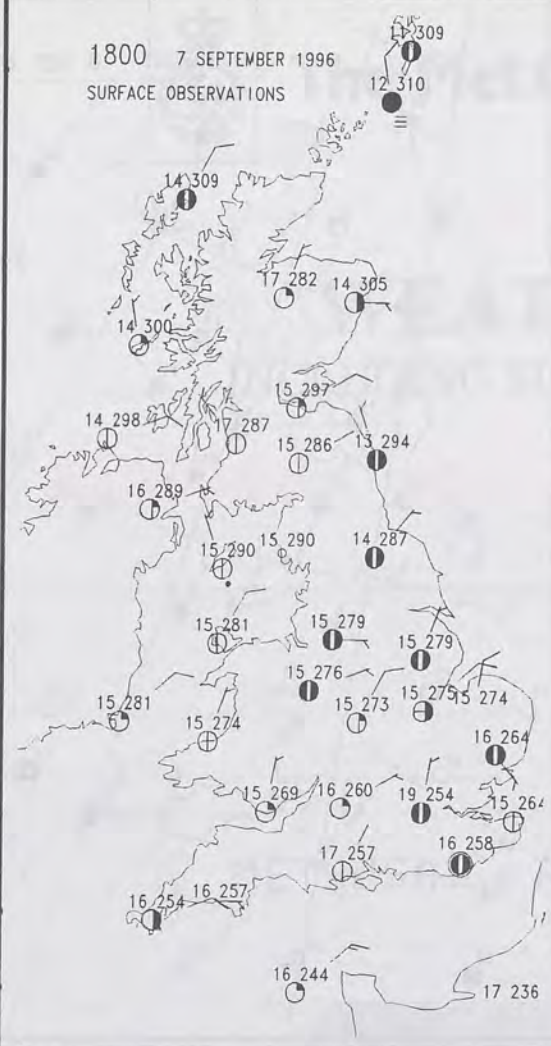 1800 7 SEPTEMBER 1996
SURFACE OBSERVATIONS
11 309
12 310
14 309
17 282
14 305
14 300
15 297
14 298
17 287
15 286
13 294
16 289
15 290
15 290
14 287
15 281
15 279
15 279
15 276
15 281
15 273
15 275
15 274
15 274
16 264
15 269
16 260
19 254
15 264
17 257
16 258
16 257
16 254
16 244
17 236